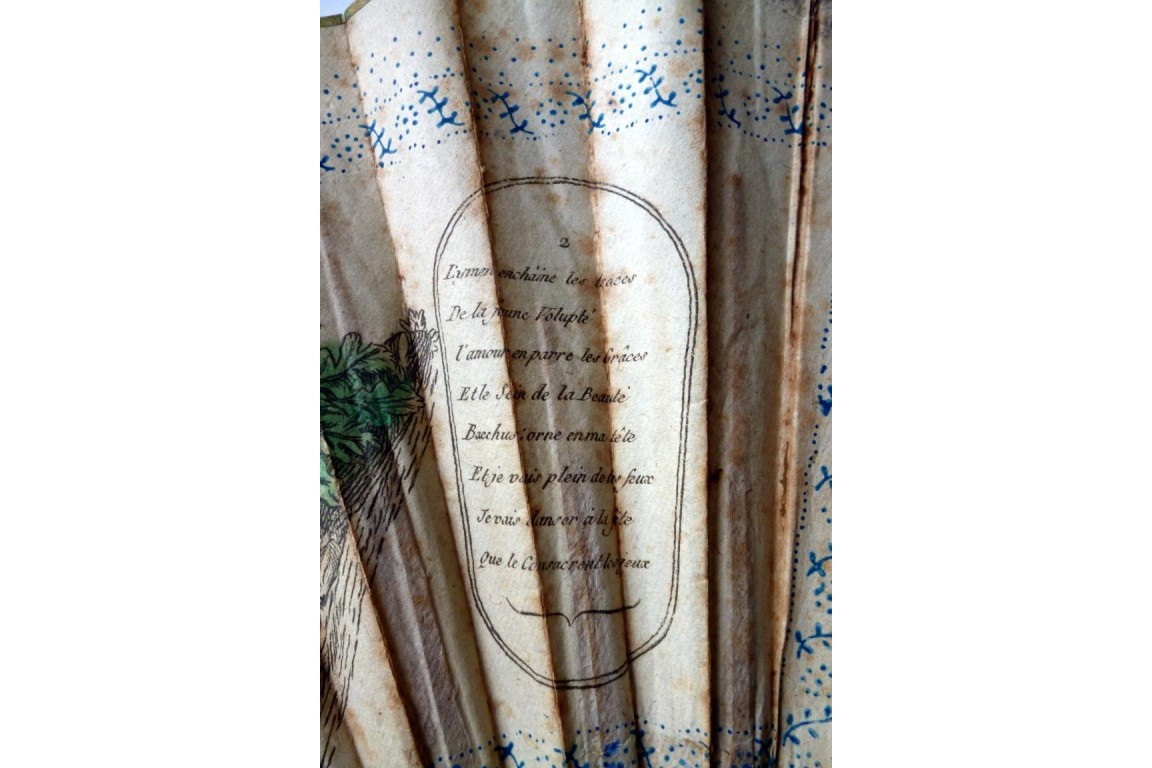 2
L'ymen enchâine les traces
De la jeune Volupté
l'amour en parre les Grâces
Et le Sein de la Beauté
Bacchus orne en ma tête
Et je vais plein de tes feux
Je vais danser à la fête
Que le Consacrent les jeux